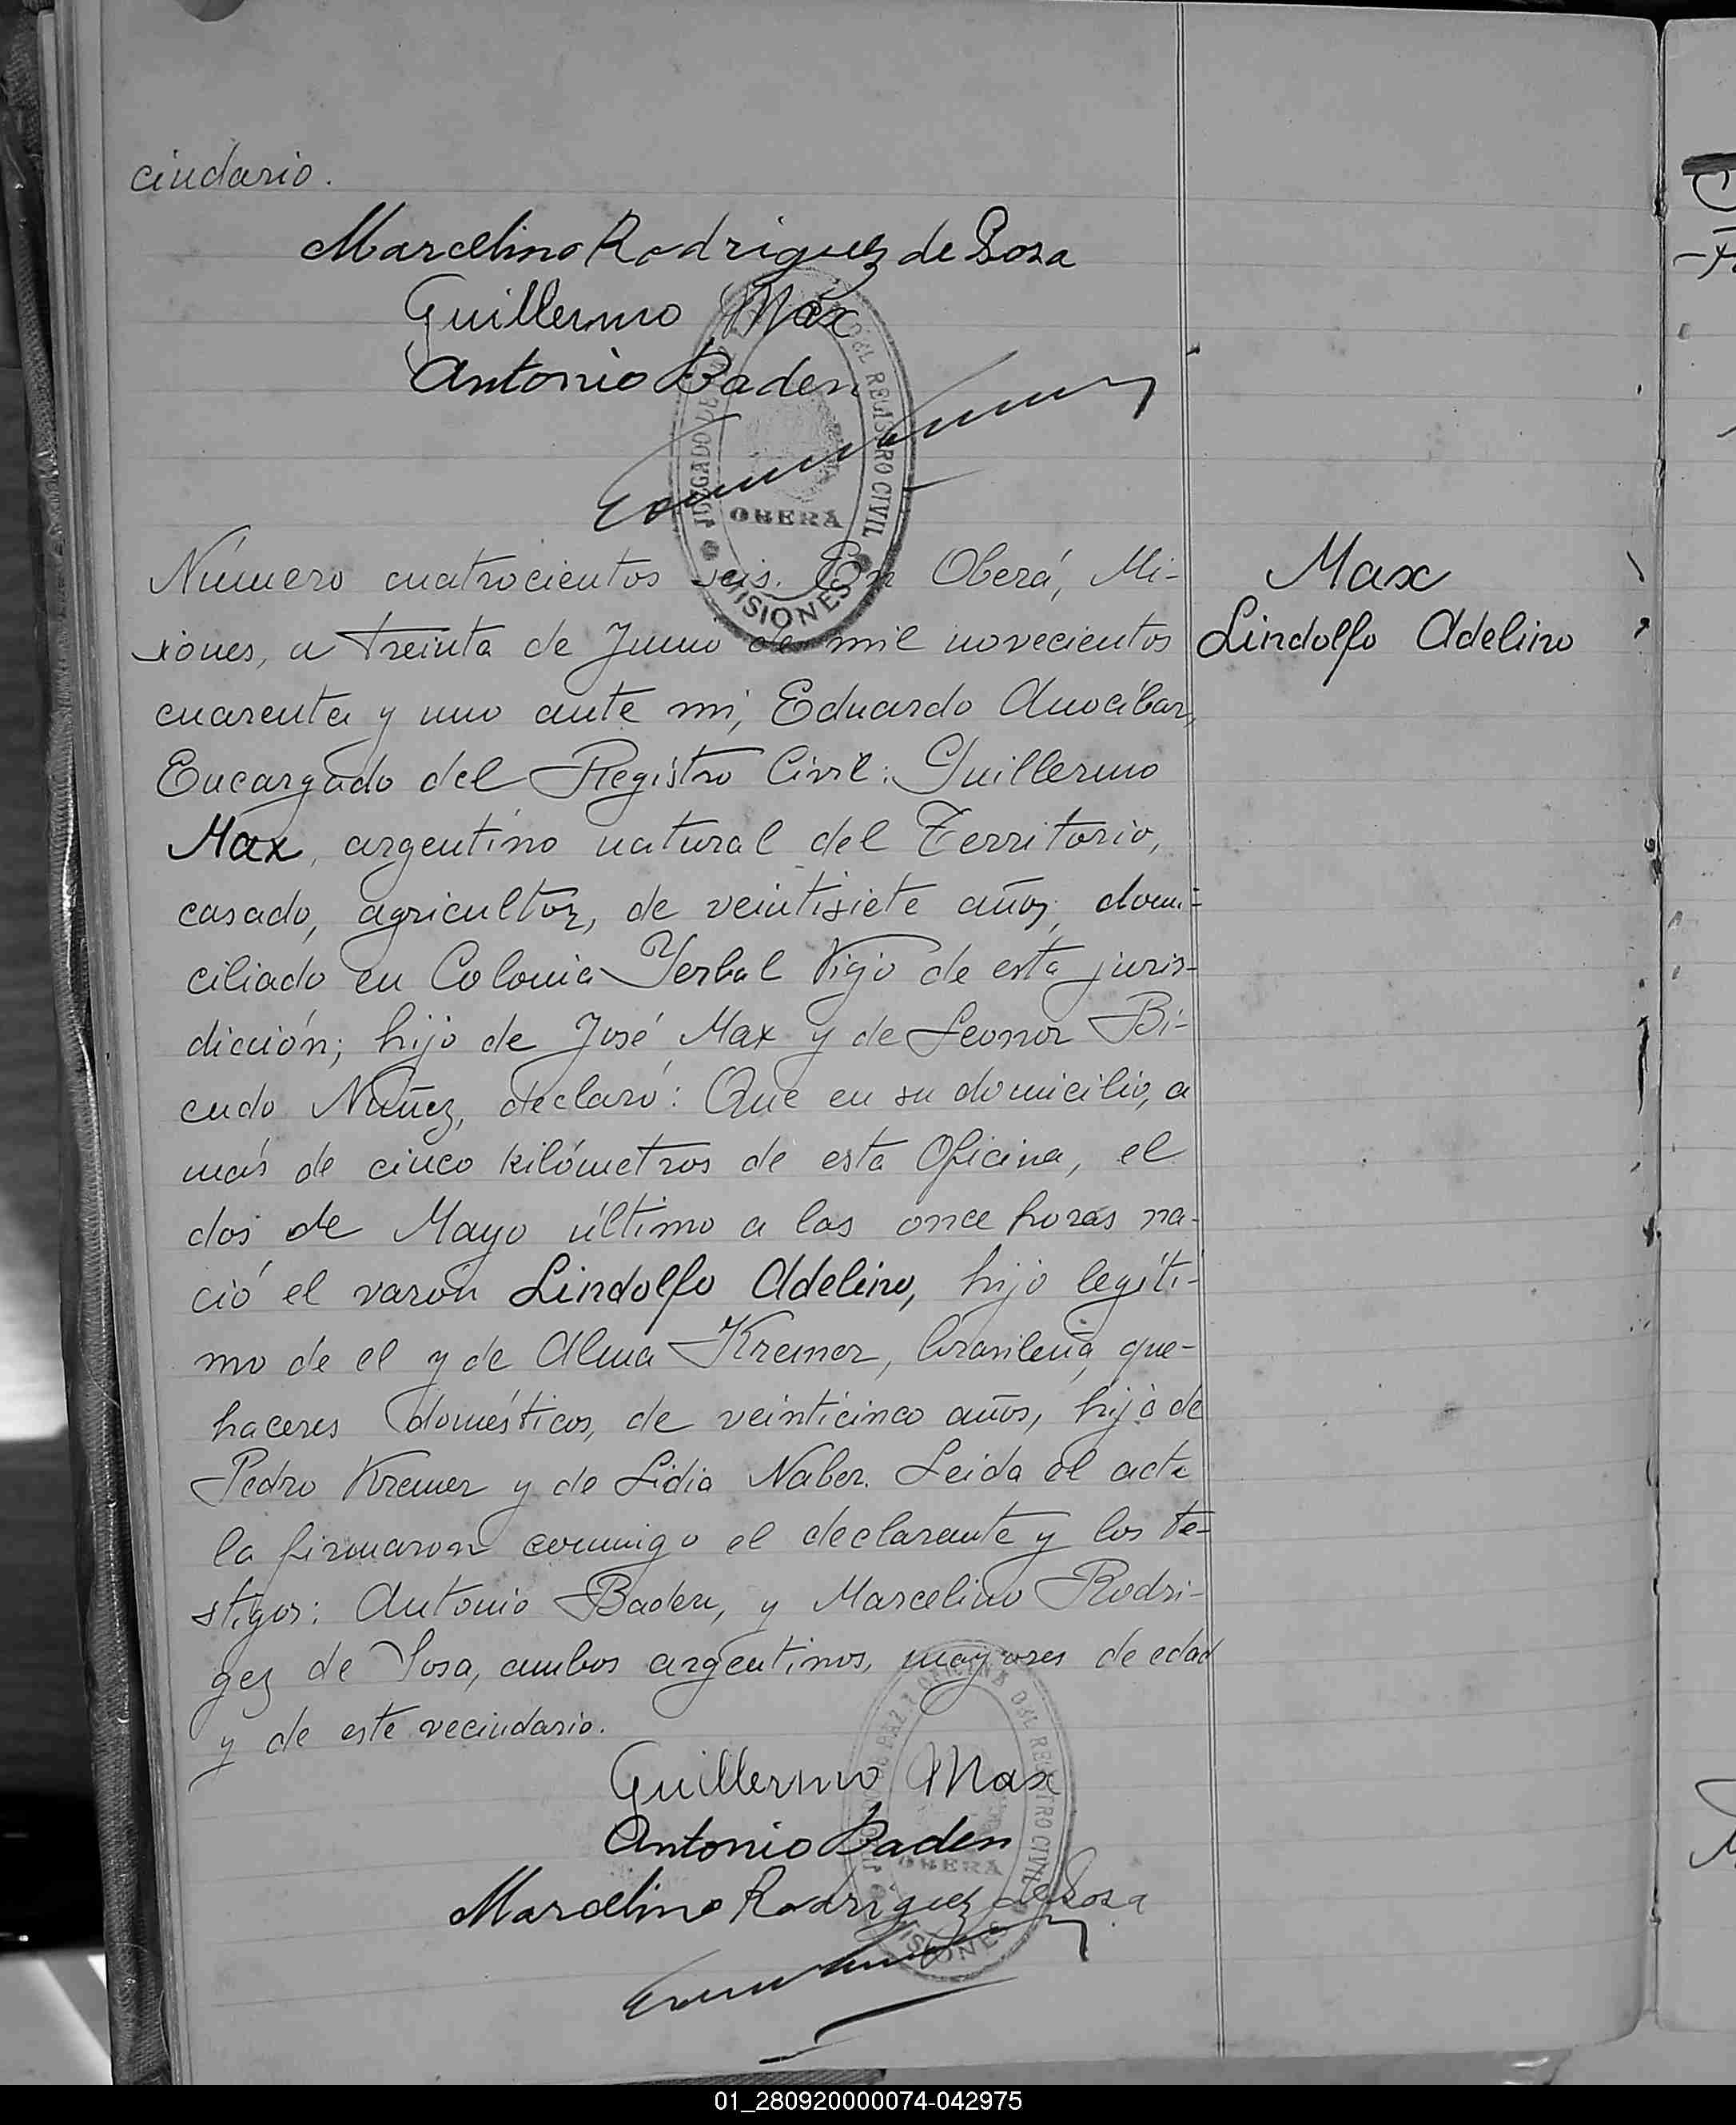 cindario.
Marcelino Rodriguez de Sosa
Guillermo Max
Antonio Baden
JUZGADO DE DEL REGISTRO CIVIL
OBERÁ
MISIONES
Número cuatrocientos seis. En Oberá, Mi-
siones, a treinta de Junio de mil novecientos
cuarenta y uno ante mi, Eduardo Anocibar,
Encargado del Registro Civil: Guillermo
Max, argentino natural del Territorio,
casado, agricultor, de veintisiete años, domi-
ciliado en Colonia Yerbal Viejo de esta juris-
dicción; hijo de José Max y de Leonor Bi-
cudo Nuñez, declaró: Que en su domicilio, a
más de cinco kilómetros de esta Oficina, el
dos de Mayo último a las once horas na-
ció el varón Lindolfo Adelino, hijo legíti-
mo de el y de Alma Kremer, brasileña, que-
haceres domésticos, de veinticinco años, hija de
Pedro Kremer y de Lidia Naber. Leida el acta
la firmaron conmigo el declarante y los te-
stigos: Antonio Baden, y Marcelino Rodri-
gez de Sosa, ambos argentinos, mayores de edad
y de este vecindario.
Max
Lindolfo Adelino
Guillermo Max
Antonio Baden
Marcelino Rodriguez de Sosa
JUZGADO DE PAZ Y OFICINA DEL REGISTRO CIVIL
OBERA
MISIONES
01_280920000074-042975